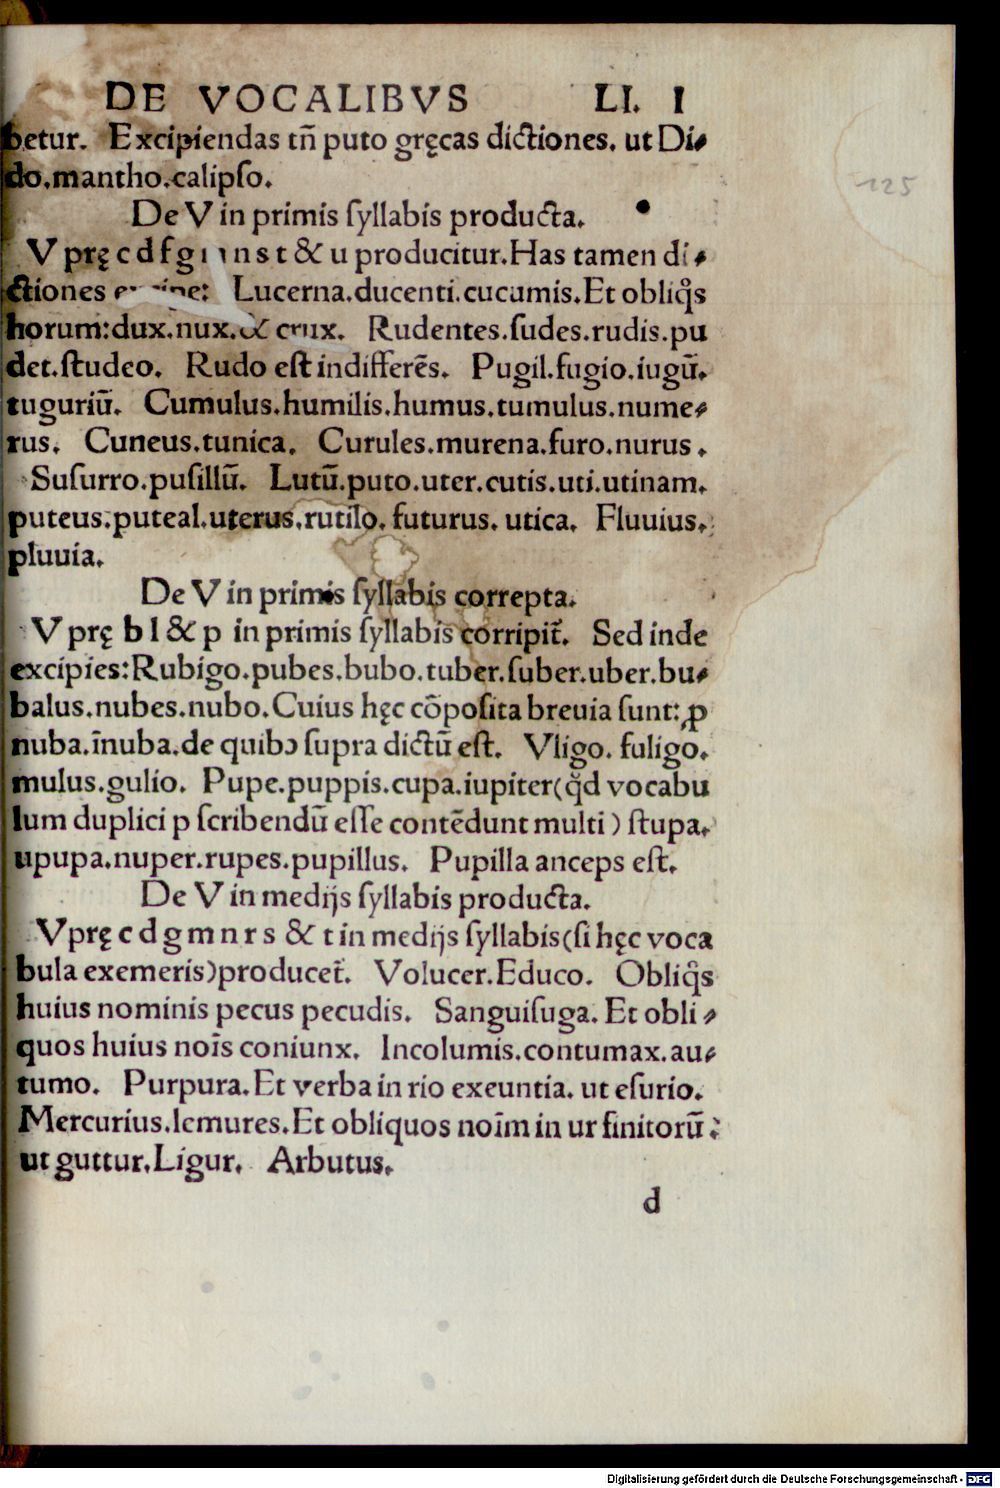 DE VOCALIBVS LI. I
betur. Excipiendas tñ puto gręcas dictiones. ut Di⸗
do.mantho.calipſo.
De V in primis ſyllabis producta.
V prę c d f g n s t & u producitur.Has tamen di⸗
ctiones Lucerna.ducenti.cucumis.Et obliq̃s
horum:dux.nux.& crux. Rudentes.ſudes.rudis.pu
det.ſtudeo. Rudo eſt indifferẽs. Pugil.fugio.iugũ.
tuguriũ. Cumulus.humilis.humus.tumulus.nume⸗
rus. Cuneus.tunica. Curules.murena.furo.nurus.
Suſurro.puſillũ. Lutũ.puto.uter.cutis.uti.utinam.
puteus.puteal.uterus.rutilo.futurus.utica. Fluuius.
pluuia.
De V in primis ſyllabis correpta.
V prę b l & p in primis ſyllabis corripit̃. Sed inde
excipies:Rubigo.pubes.bubo.tuber.ſuber.uber.bu⸗
balus.nubes.nubo.Cuius hęc cõpoſita breuia ſunt:ꝓ
nuba.ĩnuba.de quibↄ ſupra dictũ eſt. Vligo. fuligo.
mulus.gulio. Pupe.puppis.cupa.iupiter(q̃d vocabu
lum duplici p ſcribendũ eſſe contẽdunt multi) ſtupa.
upupa.nuper.rupes.pupillus. Pupilla anceps eſt.
De V in medijs ſyllabis producta.
V prę c d g m n r s & t in medijs ſyllabis(ſi hęc voca
bula exemeris)producet̃. Volucer.Educo. Obliq̃s
huius nominis pecus pecudis. Sanguiſuga. Et obli⸗
quos huius noĩs coniunx. Incolumis.contumax.au⸗
tumo. Purpura.Et verba in rio exeuntia. ut eſurio.
Mercurius.lemures.Et obliquos noĩm in ur finitorũ:
ut guttur.Ligur. Arbutus.
d
125
Digitalisierung gefördert durch die Deutsche Forschungsgemeinschaft - DFG